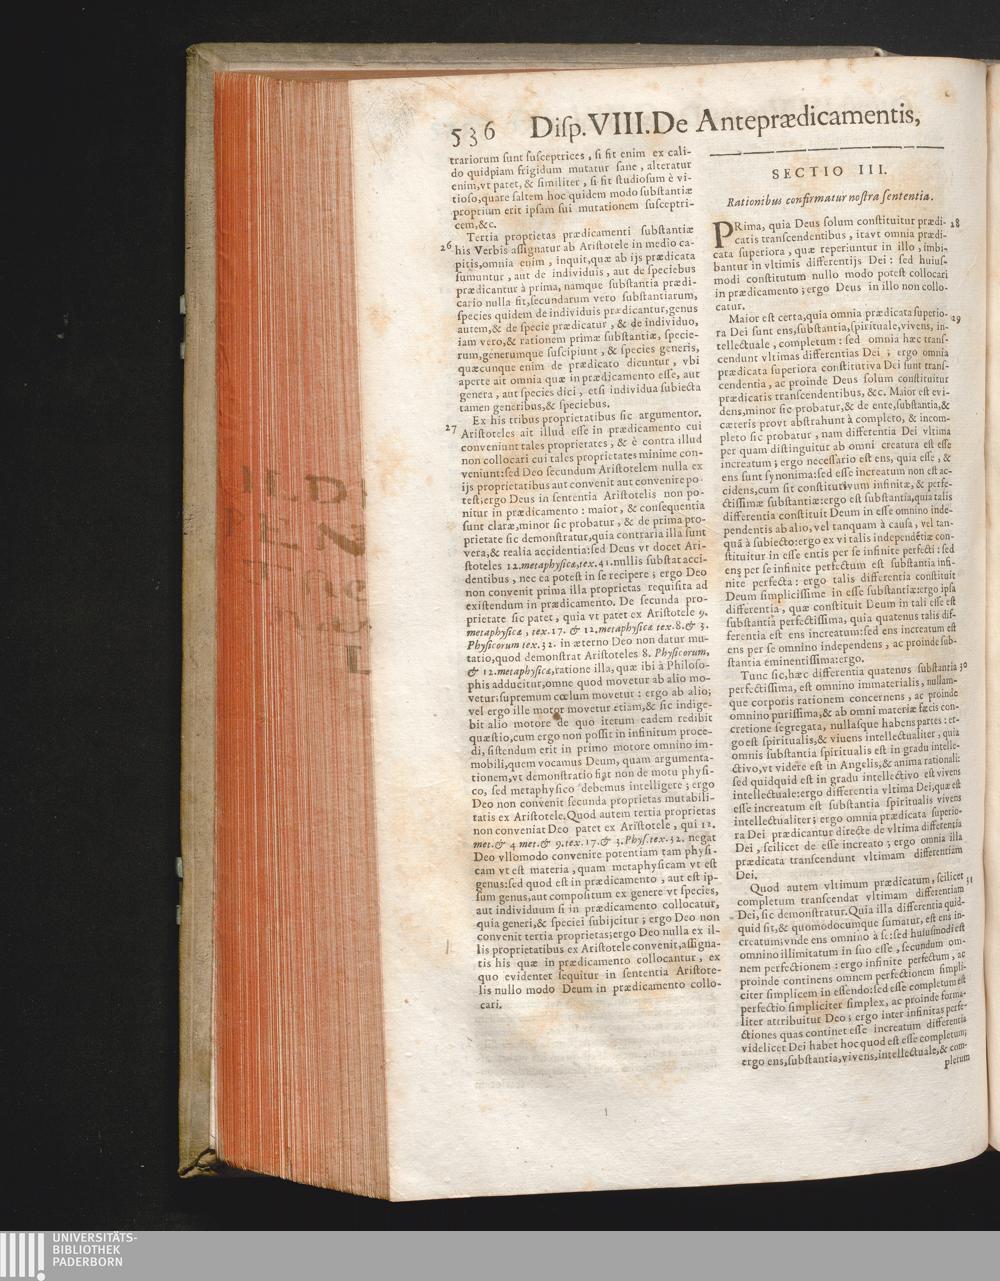 536 Disp. VIII. De Anteprædicamentis,
trariorum sunt susceptrices, si sit enim ex cali-
do quidpiam frigidum mutatur sane, alteratur
enim, vt patet, & similiter, si sit studiosum è vi-
tioso, quare saltem hoc quidem modo substantiæ
proprium erit ipsam sui mutationem suscepti-
cem, &c.
Tertia proprietas prædicamenti substantiæ
26 his Verbis assignatur ab Aristotele in medio ca-
pitis, omnia enim, inquit, quæ ab ijs prædicata
sumuntur, aut de individuis, aut de speciebus
prædicantur à prima, namque substantia prædi-
catio nulla sit, secundarum vero substantiarum,
species quidem de individuis prædicantur, genus
autem, & de specie prædicatur, & de individuo,
iam vero, & rationem primæ substantiæ, specie-
rum, generumque suscipiunt, & species generis,
quæcunque enim de prædicato dicuntur, vbi
aperte ait omnia quæ in prædicamento esse, aut
genera, aut species dici, etsi individua subiecta
tamen generibus, & speciebus.
Ex his tribus proprietatibus sic argumentor.
27 Aristoteles ait illud esse in prædicamento cui
conveniunt tales proprietates, & è contra illud
non collocari cui tales proprietates minime con-
veniunt: sed Deo secundum Aristotelem nulla ex
ijs proprietatibus aut convenit aut convenire po-
test, ergo Deus in sententia Aristotelis non po-
nitur in prædicamento: maior, & consequentia
sunt claræ, minor sic probatur, & de prima pro-
prietate sic demonstratur, quia contraria illa sunt
vera, & realia accidentia: sed Deus vt docet Ari-
stoteles 12. metaphysicæ, tex. 41. nullis substat acci-
dentibus, nec ea potest in se recipere; ergo Deo
non convenit prima illa proprietas requisita ad
existendum in prædicamento. De secunda pro-
prietate sic patet, quia vt patet ex Aristotele 9.
metaphysicæ, tex. 17. & 12. metaphysicæ tex. 8. & 3.
Physicorum tex. 32. in æterno Deo non datur mu-
tatio, quod demonstrat Aristoteles 8. Physicorum,
& 12. metaphysicæ, ratione illa, quæ ibi à Philoso-
phis adducitur, omne quod movetur ab alio mo-
vetur: supremum cœlum movetur: ergo ab alio;
vel ergo ille motor movetur etiam, & sic indige-
bit alio motore de quo iterum eadem redibit
quæstio, cum ergo non possit in infinitum proce-
di, sistendum erit in primo motore omnino im-
mobili, quem vocamus Deum, quam argumenta-
tionem, vt demonstratio fiat non de motu physi-
co, sed metaphysico debemus intelligere; ergo
Deo non convenit secunda proprietas mutabili-
tatis ex Aristotele. Quod autem tertia proprietas
non conveniat Deo patet ex Aristotele, qui 12.
met. & 4 met. & 9. tex. 17. & 3. Phys. tex. 32. negat
Deo vllomodo convenire potentiam tam physi-
cam vt est materia, quam metaphysicam vt est
genus: sed quod est in prædicamento, aut est ip-
sum genus, aut compositum ex genere vt species,
aut individuum si in prædicamento collocatur,
quia generi, & speciei subijcitur; ergo Deo non
convenit tertia proprietas; ergo Deo nulla ex il-
lis proprietatibus ex Aristotele convenit, assigna-
tis his quæ in prædicamento collocantur, ex
quo evidenter sequitur in sententia Aristote-
lis nullo modo Deum in prædicamento collo-
cari.
SECTIO III.
Rationibus confirmatur nostra sententia.
PRima, quia Deus solum constituitur prædi- 28
catis transcendentibus, itavt omnia prædi-
cata superiora, quæ reperiuntur in illo, imbi-
bantur in vltimis differentijs Dei: sed huius-
modi constitutum nullo modo potest collocari
in prædicamento; ergo Deus in illo non collo-
catur.
Maior est certa, quia omnia prædicata superio- 29
ra Dei sunt ens, substantia, spirituale, vivens, in-
tellectuale, completum: sed omnia hæc trans-
cendunt vltimas differentias Dei; ergo omnia
prædicata superiora constitutiva Dei sunt trans-
cendentia, ac proinde Deus solum constituitur
prædicatis transcendentibus, &c. Maior est evi-
dens, minor sic probatur, & de ente, substantia, &
cæteris provt abstrahunt à completo, & incom-
pleto sic probatur, nam differentia Dei vltima
per quam distinguitur ab omni creatura est esse
increatum; ergo necessario est ens, quia esse, &
ens sunt synonima: sed esse increatum non est ac-
cidens, cum sit constitutivum infinitæ, & perfe-
ctissimæ substantiæ: ergo est substantia, quia talis
differentia constituit Deum in esse omnino inde-
pendentis ab alio, vel tanquam à causa, vel tan-
quã à subiecto: ergo ex vi talis independẽtiæ con-
stituitur in esse entis per se infinite perfecti: sed
ens per se infinite perfectum est substantia infi-
nite perfecta: ergo talis differentia constituit
Deum simplicissime in esse substantiæ: ergo ipsa
differentia, quæ constituit Deum in tali esse est
substantia perfectissima, quia quatenus talis dif-
ferentia est ens increatum: sed ens increatum est
ens per se omnino independens, ac proinde sub-
stantia eminentissima: ergo.
Tunc sic, hæc differentia quatenus substantia 30
perfectissima, est omnino immaterialis, nullam-
que corporis rationem concernens, ac proinde
omnino purissima, & ab omni materiæ fæcis con-
cretione segregata, nullasque habens partes: er-
go est spiritualis, & viuens intellectualiter, quia
omnis substantia spiritualis est in gradu intelle-
ctivo, vt videre est in Angelis, & anima rationali:
sed quidquid est in gradu intellectivo est vivens
intellectuale: ergo differentia vltima Dei, quæ est
esse increatum est substantia spiritualis vivens
intellectualiter; ergo omnia prædicata superio-
ra Dei prædicantur directe de vltima differentia
Dei, scilicet de esse increato; ergo omnia illa
prædicata transcendunt vltimam differentiam
Dei.
Quod autem vltimum prædicatum, scilicet 31
completum transcendat vltimam differentiam
Dei, sic demonstratur. Quia illa differentia quid-
quid sit, & quomodocumque sumatur, est ens in-
creatum; vnde ens omnino à se: sed huiusmodi est
omnino illimitatum in suo esse, secundum om-
nem perfectionem: ergo infinite perfectum, ac
proinde continens omnem perfectionem simpli-
citer simplicem in essendo: sed esse completum est
perfectio simpliciter simplex, ac proinde forma-
liter attribuitur Deo; ergo inter infinitas perfe-
ctiones quas continet esse increatum differentia
videlicet Dei habet hoc quod est esse completum;
ergo ens, substantia, vivens, intellectuale, & com-
pletum
UNIVERSITÄTS-
BIBLIOTHEK
PADERBORN